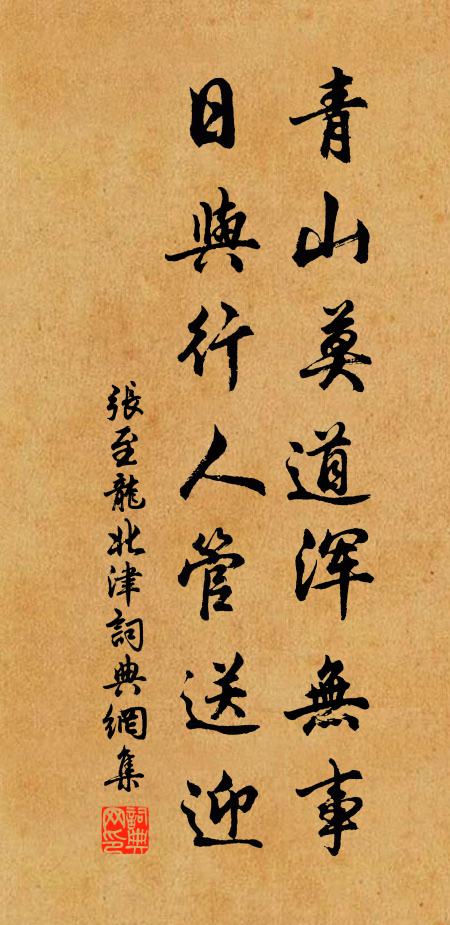 青山莫道浑無事
日與行人管送迎
張至龍北津詞典網集
詞典网印